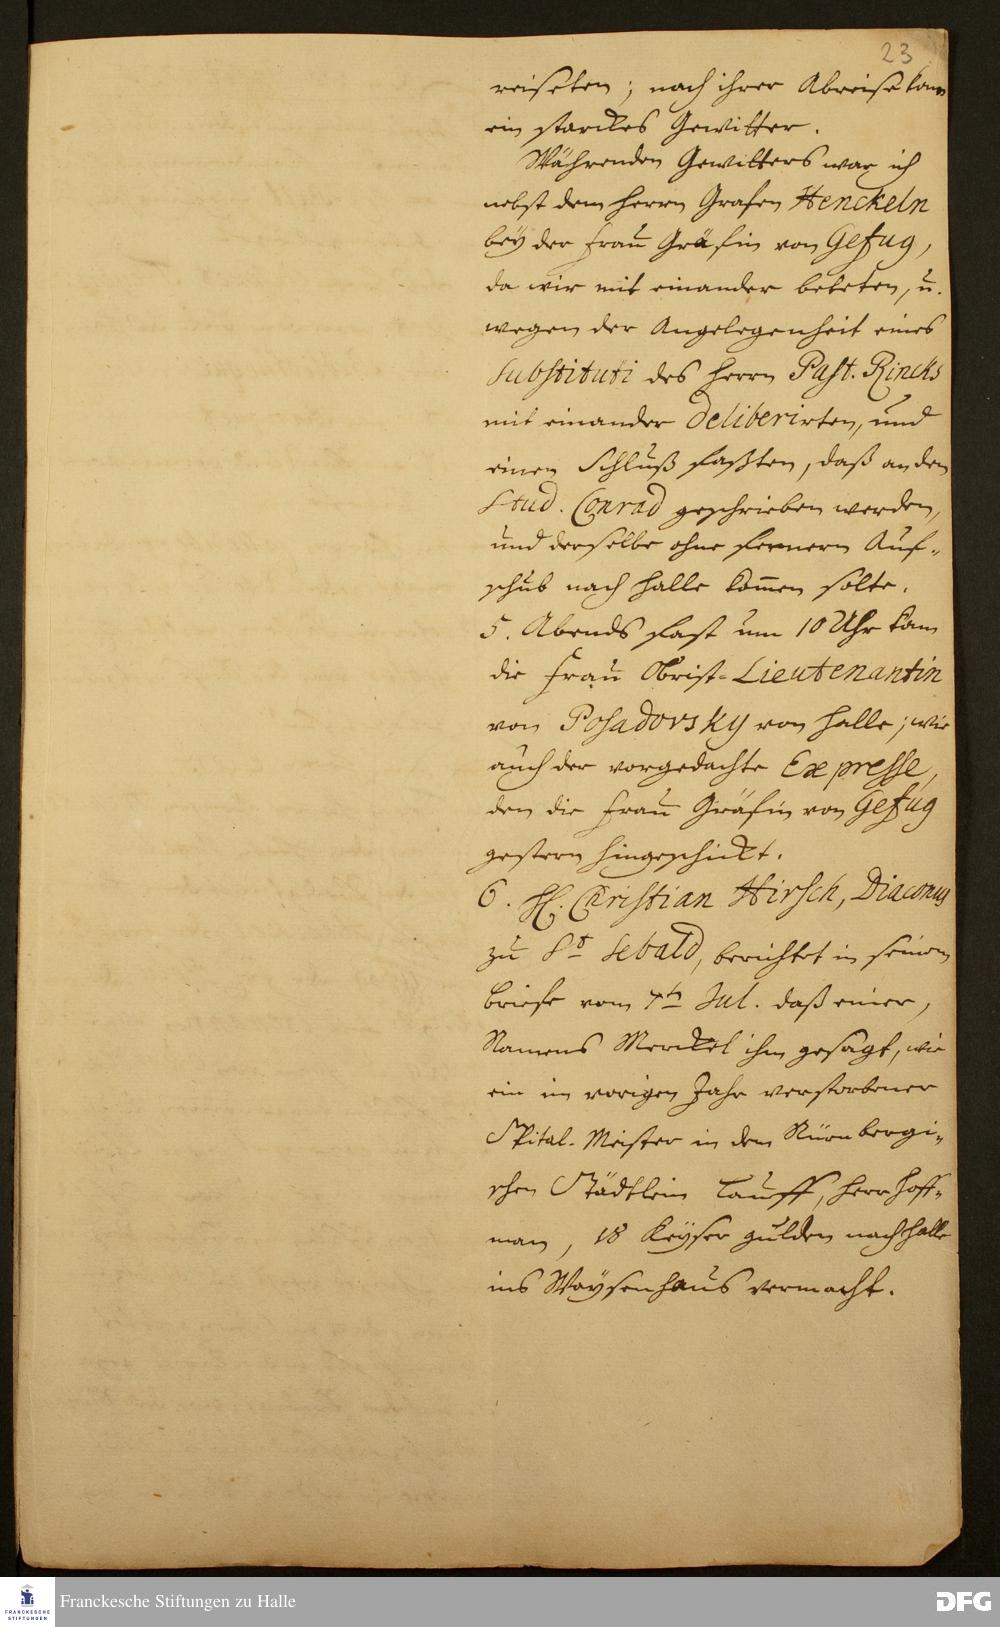 23
reiseten; nach ihrer Abreise kam
ein starckes Gewitter.
Währenden Gewitters war ich
nebst dem Herrn Grafen Henckeln
beÿ der Frau Gräfin von Gefug,
da wir mit einander beteten, u.
wegen der Angelegenheit eines
Substituti des Herrn Past. Rincks
mit einander deliberirten, und
einen Schluß faßten, daß an den
Stud. Conrad geschrieben werden,
und derselbe ohne fernern Auf-
schub nach Halle kommen solte.
5. Abends fast um 10 Uhr kam
die Frau Obrist-Lieutenantin
von Posadovsky von Halle; wie
auch der vorgedachte Expresse,
den die Frau Gräfin von Gefug
gestern hingeschickt.
6. H. Christian Hirsch, Diaconus
zu St Sebald, berichtet in seinem
Briefe vom 7th Jul. daß einer,
Namens Merckel ihm gesagt, wie
ein im vorigen Jahr verstorbener
Spital-Meister in dem Nürnbergi-
schen Städtlein Lauff, Herr Hoff-
man, 18 Keÿser gulden nach Halle
ins Waÿsenhaus vermacht.
FRANCKESCHE STIFTUNGEN
Franckesche Stiftungen zu Halle
DFG